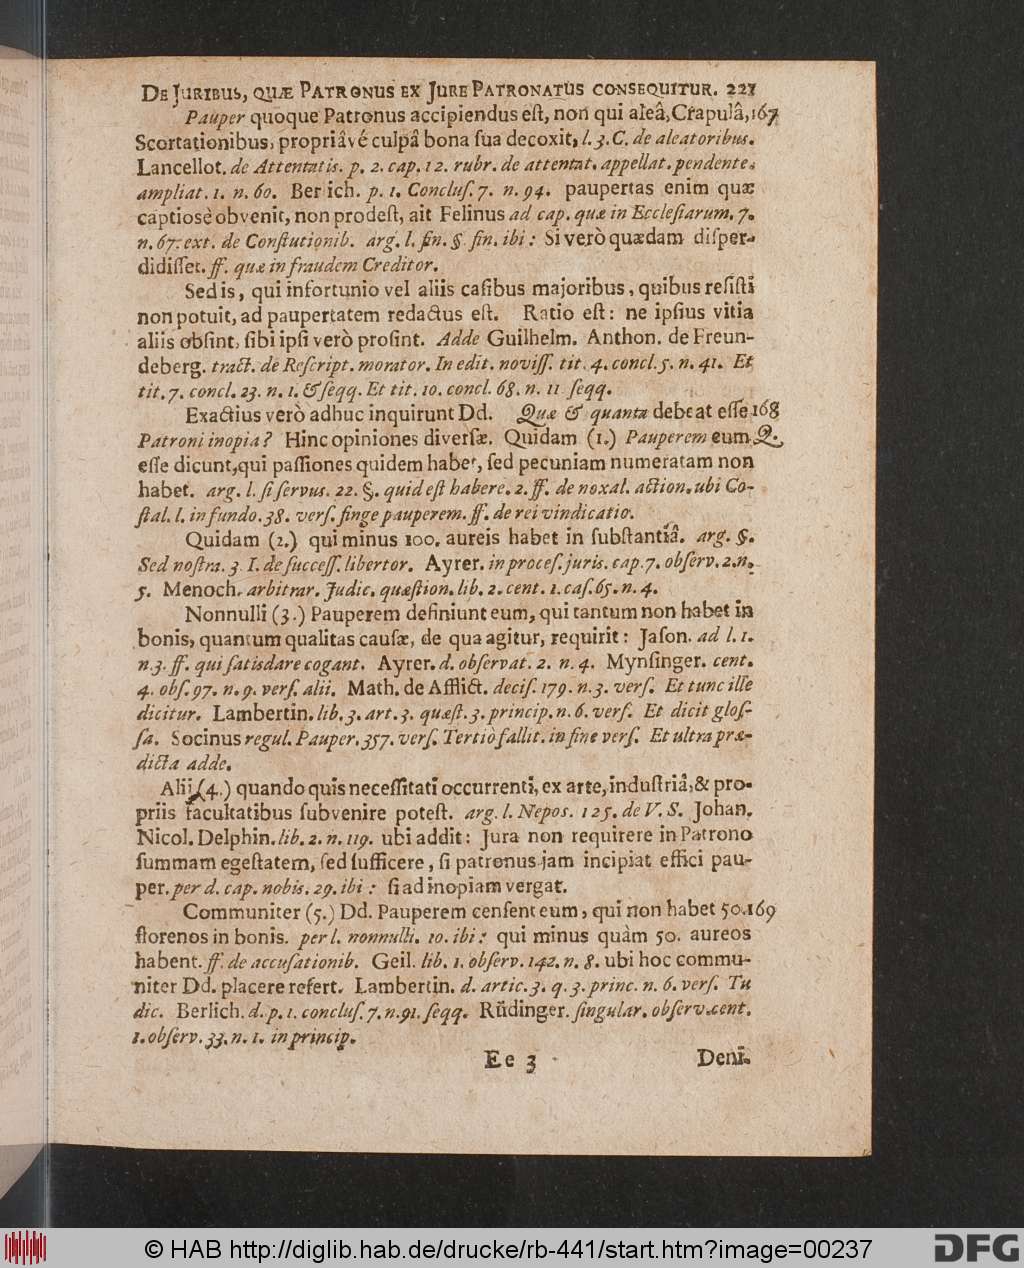 De Juribus, quæ Patronus ex Jure Patronatus consequitur. 221
Pauper quoque Patronus accipiendus eſt, non qui aleâ, Crapulâ, 167
Scortationibus, propriâvé culpâ bona ſua decoxit, l. 3. C. de aleatoribus.
Lancellot. de Attentatis. p. 2. cap. 12. rubr. de attentat. appellat. pendente.
ampliat. 1. n. 60. Berlich. p. 1. Concluſ. 7. n. 94. paupertas enim quæ
captiosè obvenit, non prodeſt, ait Felinus ad cap. quæ in Eccleſiarum. 7.
n. 67. ext. de Conſtutionib. arg. l. fin. §. fin. ibi: Si verò quædam diſper-
didiſſet. ff. quæ in fraudem Creditor.
Sed is, qui infortunio vel aliis caſibus majoribus, quibus reſiſti
non potuit, ad paupertatem redactus eſt. Ratio eſt: ne ipſius vitia
aliis obſint, ſibi ipſi verò proſint. Adde Guilhelm. Anthon. de Freun-
deberg. tract. de Reſcript. morator. In edit. noviſſ. tit. 4. concl. 5. n. 41. Et
tit. 7. concl. 23. n. 1. & ſeqq. Et tit. 10. concl. 68. n. 11 ſeqq.
Exactius verò adhuc inquirunt Dd. Quæ & quanta debeat eſſe 168
Patroni inopia? Hinc opiniones diverſæ. Quidam (1.) Pauperem eum Q.
eſſe dicunt, qui paſſiones quidem habet, ſed pecuniam numeratam non
habet. arg. l. ſi ſervus. 22. §. quid eſt habere. 2. ff. de noxal. action. ubi Co-
ſtal. l. in fundo. 38. verſ. finge pauperem. ff. de rei vindicatio.
Quidam (2.) qui minus 100. aureis habet in ſubſtantiâ. arg. §.
Sed noſtra. 3. I. de ſucceſſ. libertor. Ayrer. in proceſ. juris. cap. 7. obſerv. 2. n.
5. Menoch. arbitrar. Judic. quæſtion. lib. 2. cent. 1. caſ. 65. n. 4.
Nonnulli (3.) Pauperem definiunt eum, qui tantum non habet in
bonis, quantum qualitas cauſæ, de qua agitur, requirit: Jaſon. ad l. 1.
n. 3. ff. qui ſatisdare cogant. Ayrer. d. obſervat. 2. n. 4. Mynſinger. cent.
4. obſ. 97. n. 9. verſ. alii. Math. de Afflict. deciſ. 179. n. 3. verſ. Et tunc ille
dicitur. Lambertin. lib. 3. art. 3. quæſt. 3. princip. n. 6. verſ. Et dicit gloſ-
ſa. Socinus regul. Pauper. 357. verſ. Tertiò fallit. in fine verſ. Et ultra præ-
dicta adde.
Alii (4.) quando quis neceſſitati occurrenti, ex arte, induſtriâ, & pro-
priis facultatibus ſubvenire poteſt. arg. l. Nepos. 125. de V. S. Johan.
Nicol. Delphin. lib. 2. n. 119. ubi addit: Jura non requirere in Patrono
ſummam egeſtatem, ſed ſufficere, ſi patronus jam incipiat effici pau-
per. per d. cap. nobis. 29. ibi: ſi ad inopiam vergat.
Communiter (5.) Dd. Pauperem cenſent eum, qui non habet 50. 169
florenos in bonis. per l. nonnulli. 10. ibi: qui minus quàm 50. aureos
habent. ff. de accuſationib. Geil. lib. 1. obſerv. 142. n. 8. ubi hoc commu-
niter Dd. placere refert. Lambertin. d. artic. 3. q. 3. princ. n. 6. verſ. Tu
dic. Berlich. d. p. 1. concluſ. 7. n. 91. ſeqq. Rüdinger. ſingular. obſerv. cent.
1. obſerv. 33. n. 1. in princip.
Ee 3 Deni-
© HAB http://diglib.hab.de/drucke/rb-441/start.htm?image=00237
DFG